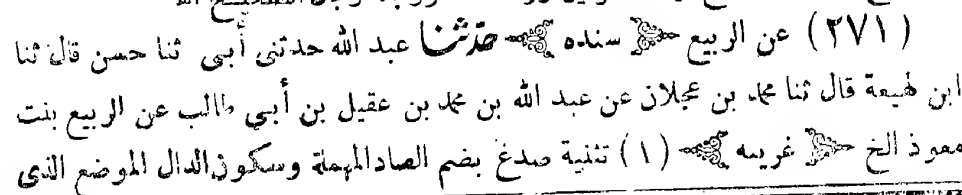 (٢٧١) عن الربيع سنده حدثنا عبد الله حدثنى أبى ثنا حسن قال ثنا
ابن لهيعة قال ثنا محمد بن عجلان عن عبد الله بن محمد بن عقيل بن أبي طالب عن الربيع بنت
معوذ الخ غريبه (١) تثنية صدغ بضم الصاد المهملة وسكون الدال الموضع الذى